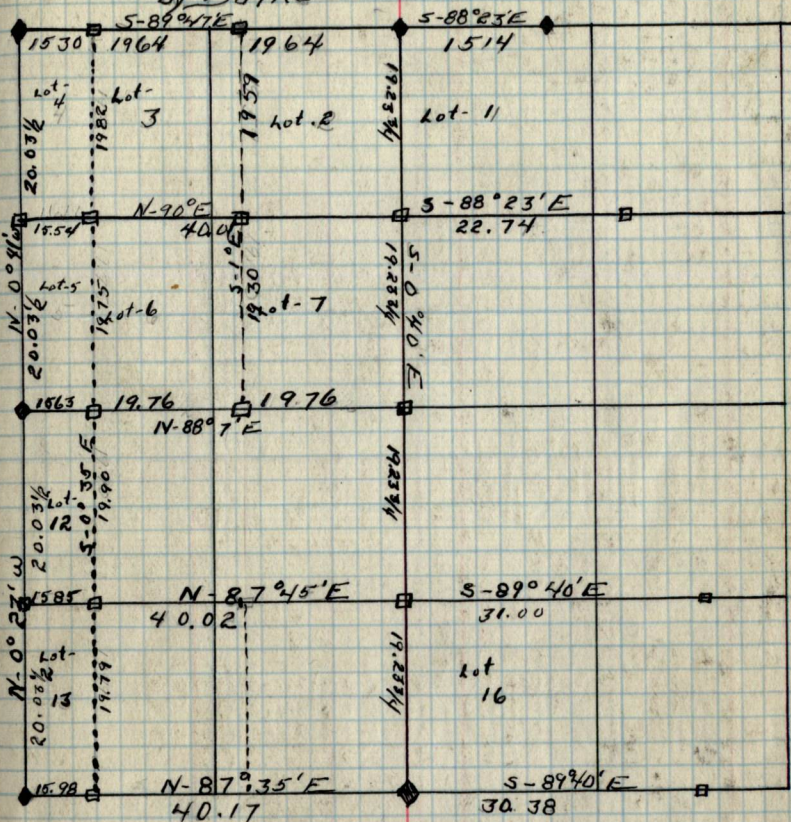 S-89°47'E
S-88°23'E
1530
1964
1964
1514
Lot-
4
Lot-
3
Lot. 2
Lot- 11
20.03½
1982
1959
19.23¾
N-90°E
S-88°23'E
15.54
40.0
22.74
N-0°41'W
Lot-5
Lot-6
Lot-7
20.03½
19.75
S-1°E
19.30
19.23¾
S-0°40'E
1563
19.76
19.76
N-88°7'E
20.03½
Lot-
12
S-0°35'E
19.90
19.23¾
1585
N-87°45'E
S-89°40'E
40.02
31.00
N-0°27'W
Lot-
13
20.03½
19.79
19.23¾
Lot
16
15.98
N-87°35'E
S-89°40'E
40.17
30.38